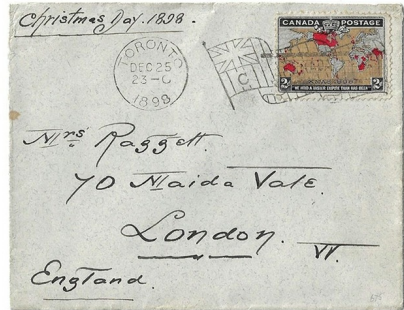 Christmas Day. 1898.
TORONTO
DEC 25
23-0
1898
C
CANADA POSTAGE
XMAS 1898
2 2
"WE HOLD A VASTER EMPIRE THAN HAS BEEN"
Mrs Raggett.
70 Maida Vale.
London. W.
England.